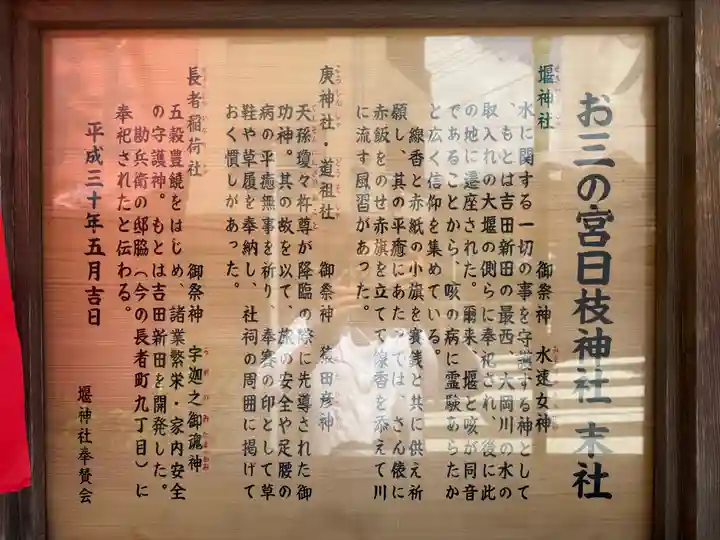 お三の宮日枝神社 末社
堰神社 御祭神 水速女神
水に関する一切の事を守護する神として
、もとは吉田新田の最西、大岡川の水の
取入れの大堰の側らに奉祀され、後に此
の地に遷座された。爾来、堰と咳が同音
であることから、咳の病に霊験あらたか
と広く信仰を集めている。
線香と赤紙の小旗を賽銭と共に供え祈
願し、其の平癒にあたっては、さん俵に
赤飯をのせ赤旗を立てて線香を添えて川
に流す風習があった。
庚神社・道祖社 御祭神 猿田彦神
天孫瓊々杵尊が降臨の際に先導された御
功神。其の故を以て、旅の安全や足腰の
病の平癒無事を祈り 奉賽の印として草
鞋や草履を奉納し、社祠の周囲に掲げて
おく慣しがあった。
長者稲荷社 御祭神 宇迦之御魂神
五穀豊饒をはじめ、諸業繁栄・家内安全
の守護神。もとは吉田新田を開発した。
勘兵衛の邸脇(今の長者町九丁目)に
奉祀されたと伝わる。
平成三十年五月吉日
堰神社奉賛会